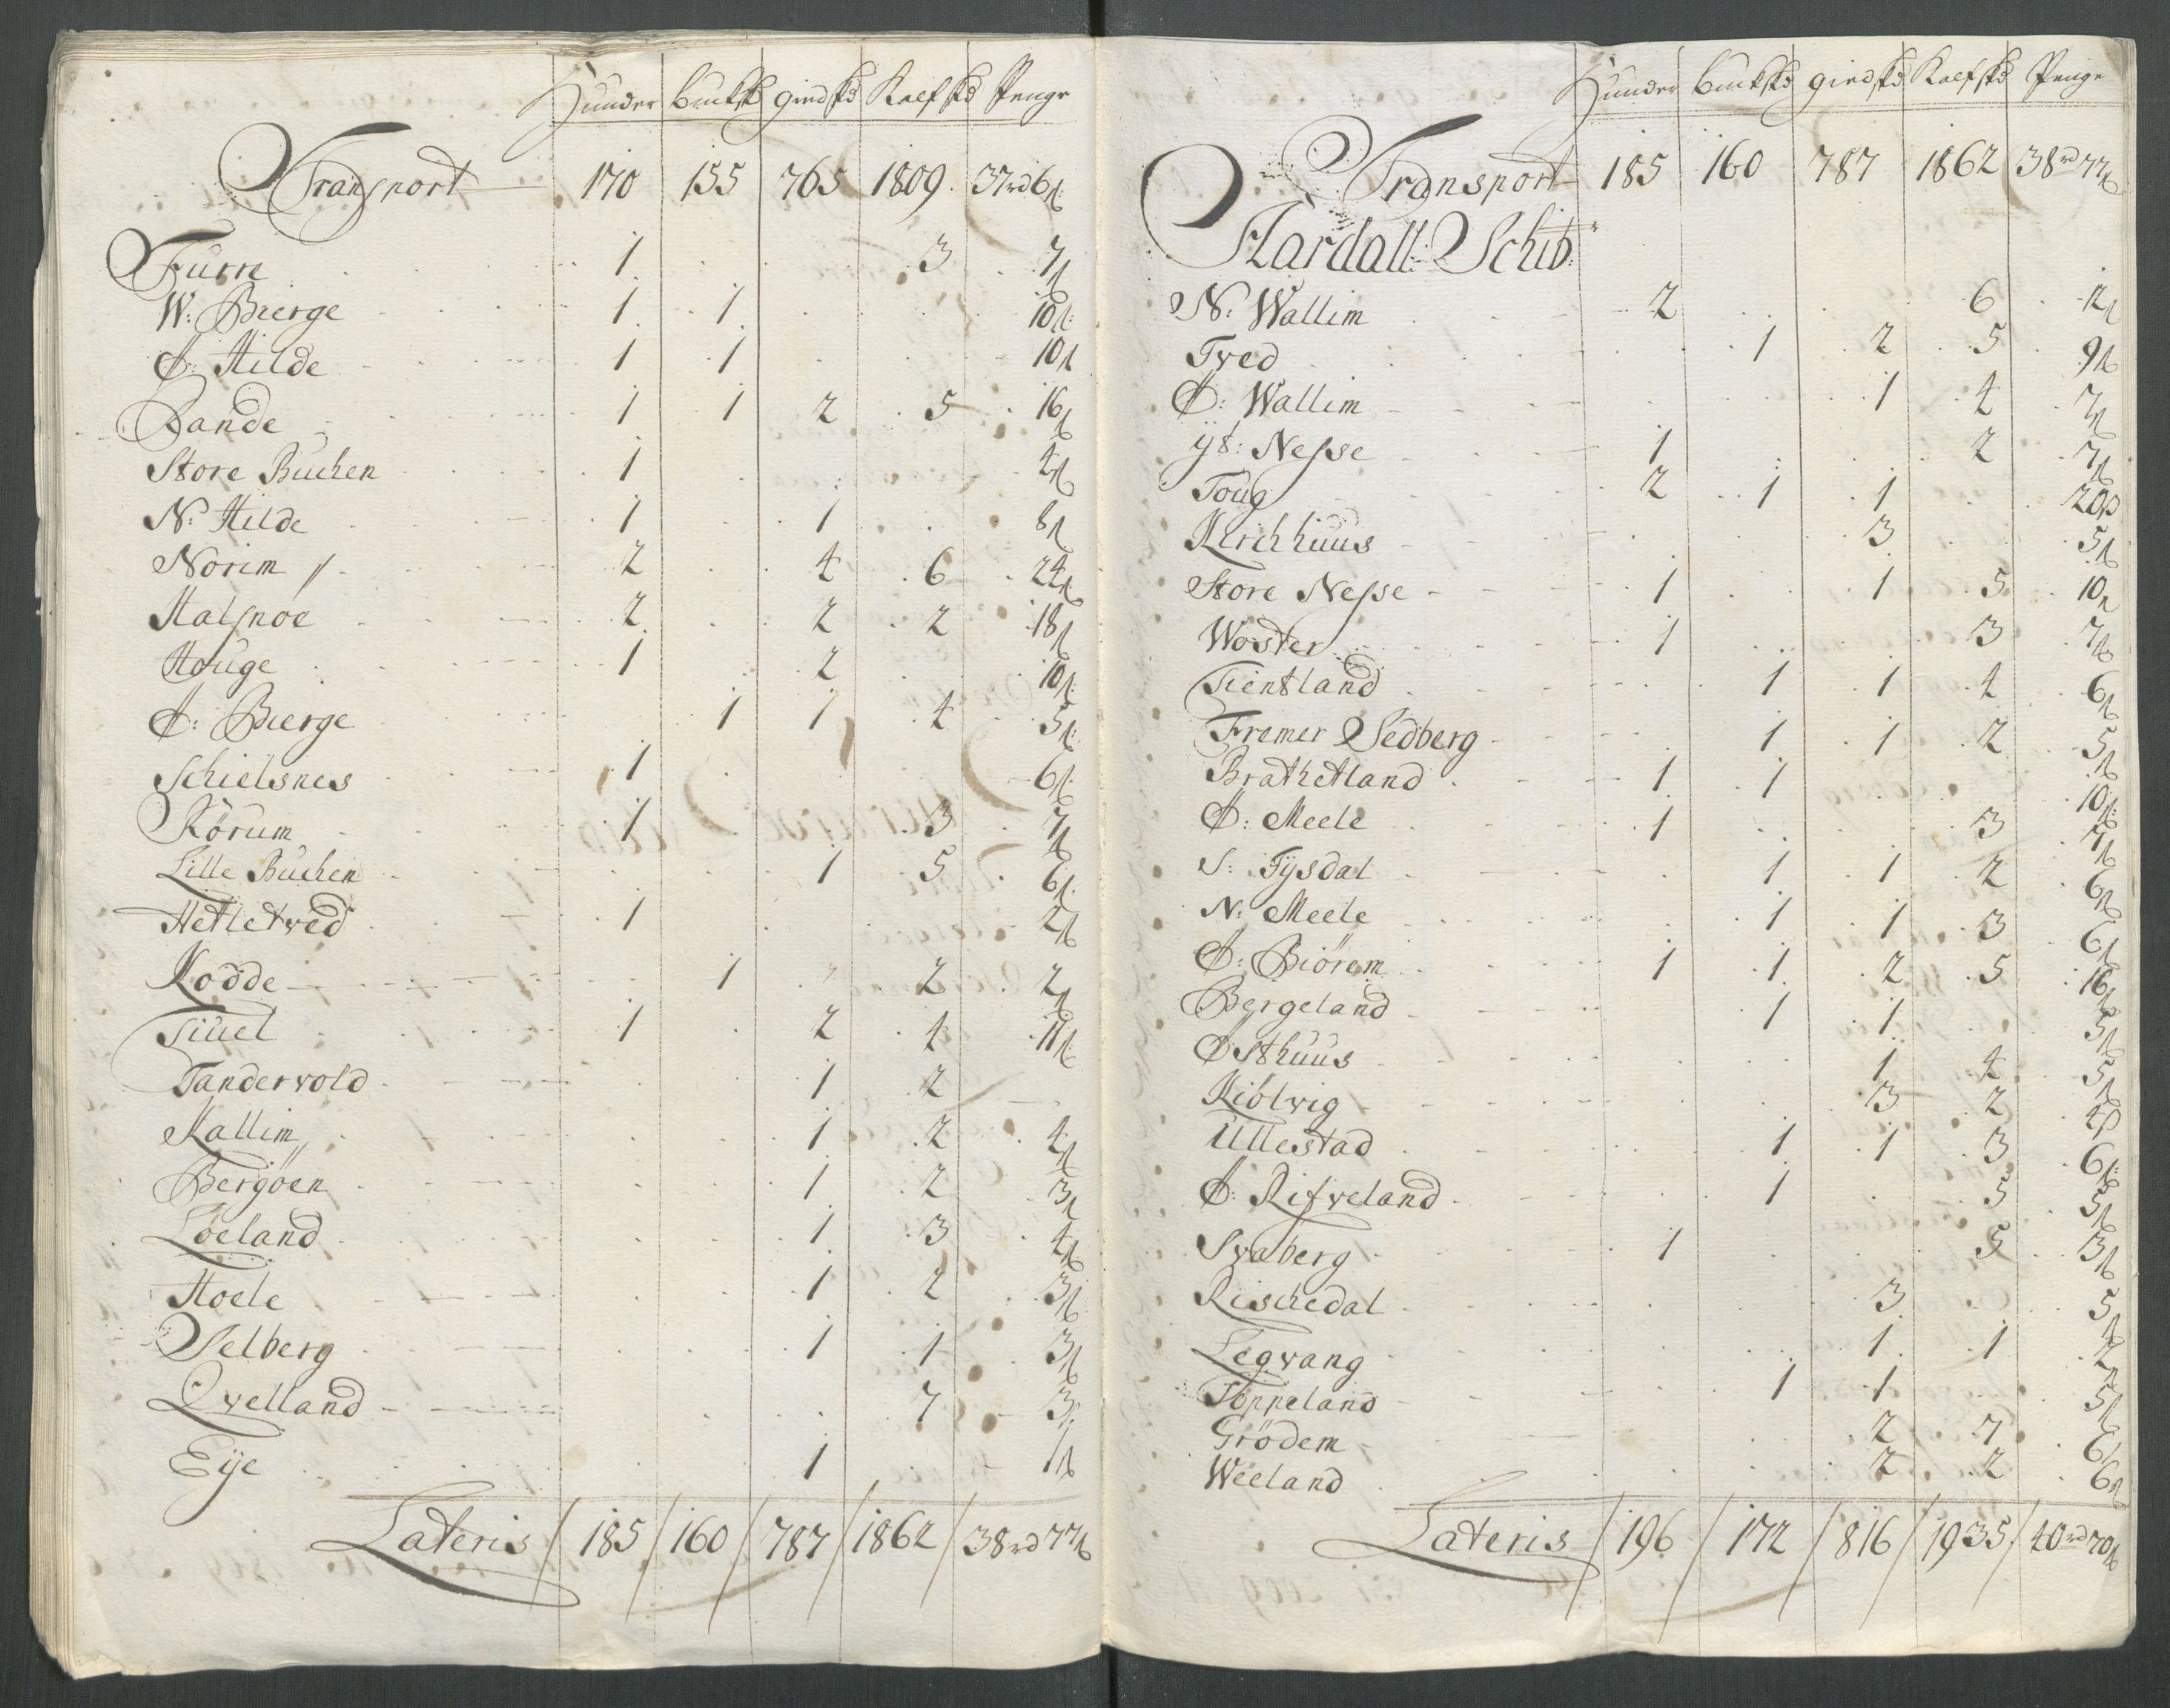 Hunder Bucksd giedsd Kalfsd Penge
Transport 170 155 765 1809 37rd 6ß
Furre 1 3 7ß
W: Bierge 1 1 10ß
Ø: Hilde 1 1 10ß
Sande 1 1 2 5 16ß
Store Buchen 1 4ß
N: Hilde 1 1 8ß
Norim 2 4 6 24ß
Halsnøe 2 2 2 18ß
Houge 1 2 10ß
Ø: Bierge 1 1 4 5ß
Schielsnes 1 6ß
Rørum 1 3 7ß
Lille Buchen 1 5 6ß
Hetletved 1 2ß
Kodde 1 2 2ß
Tiuel 1 2 4 11ß
Tandervold 1 2
Kallim 1 2 4ß
Bergøen 1 2 3ß
Løeland 1 3 4ß
Hoele 1 2 3ß
Selberg 1 1 3ß
Qvelland 7 3ß
Eije 1 1ß
Lateris 185 160 787 1862 38rd 77ß
Hunder Bucksd giedsd Kalfsd Penge
Transport 185 160 787 1862 38rd 77ß
Hardall: Schib:
N: Wallim 2 6 12ß
Tved 1 2 5 9ß
Ø: Wallim 1 4 7ß
yt: Nesse 1 2 7ß
Toug 2 1 1 20ß
Kirchhuus 3 5ß
Store Nesse 1 1 5 10ß
Woster 1 3 7ß
Tientland 1 1 4 6ß
Fremer Sedberg 1 1 2 5ß
Brathetland 1 1 10ß
Ø: Meele 1 3 7ß
S: Tysdal 1 1 2 6ß
N: Meele 1 1 3 6ß
Ø: Biørem 1 1 2 5 16ß
Bergeland 1 1 5ß
Østhuus 1 4 5ß
Kiølvig 3 2 4ß
Ullestad 1 1 3 6ß
Ø: Rifveland 1 5 5ß
Svaberg 1 5 3ß
Rischedal 3 5ß
Legvang 1 1 2ß
Toppeland 1 1 5ß
Grødem 2 7 6ß
Weeland 2 2 6ß
Lateris 196 172 816 1935 40rd 70ß